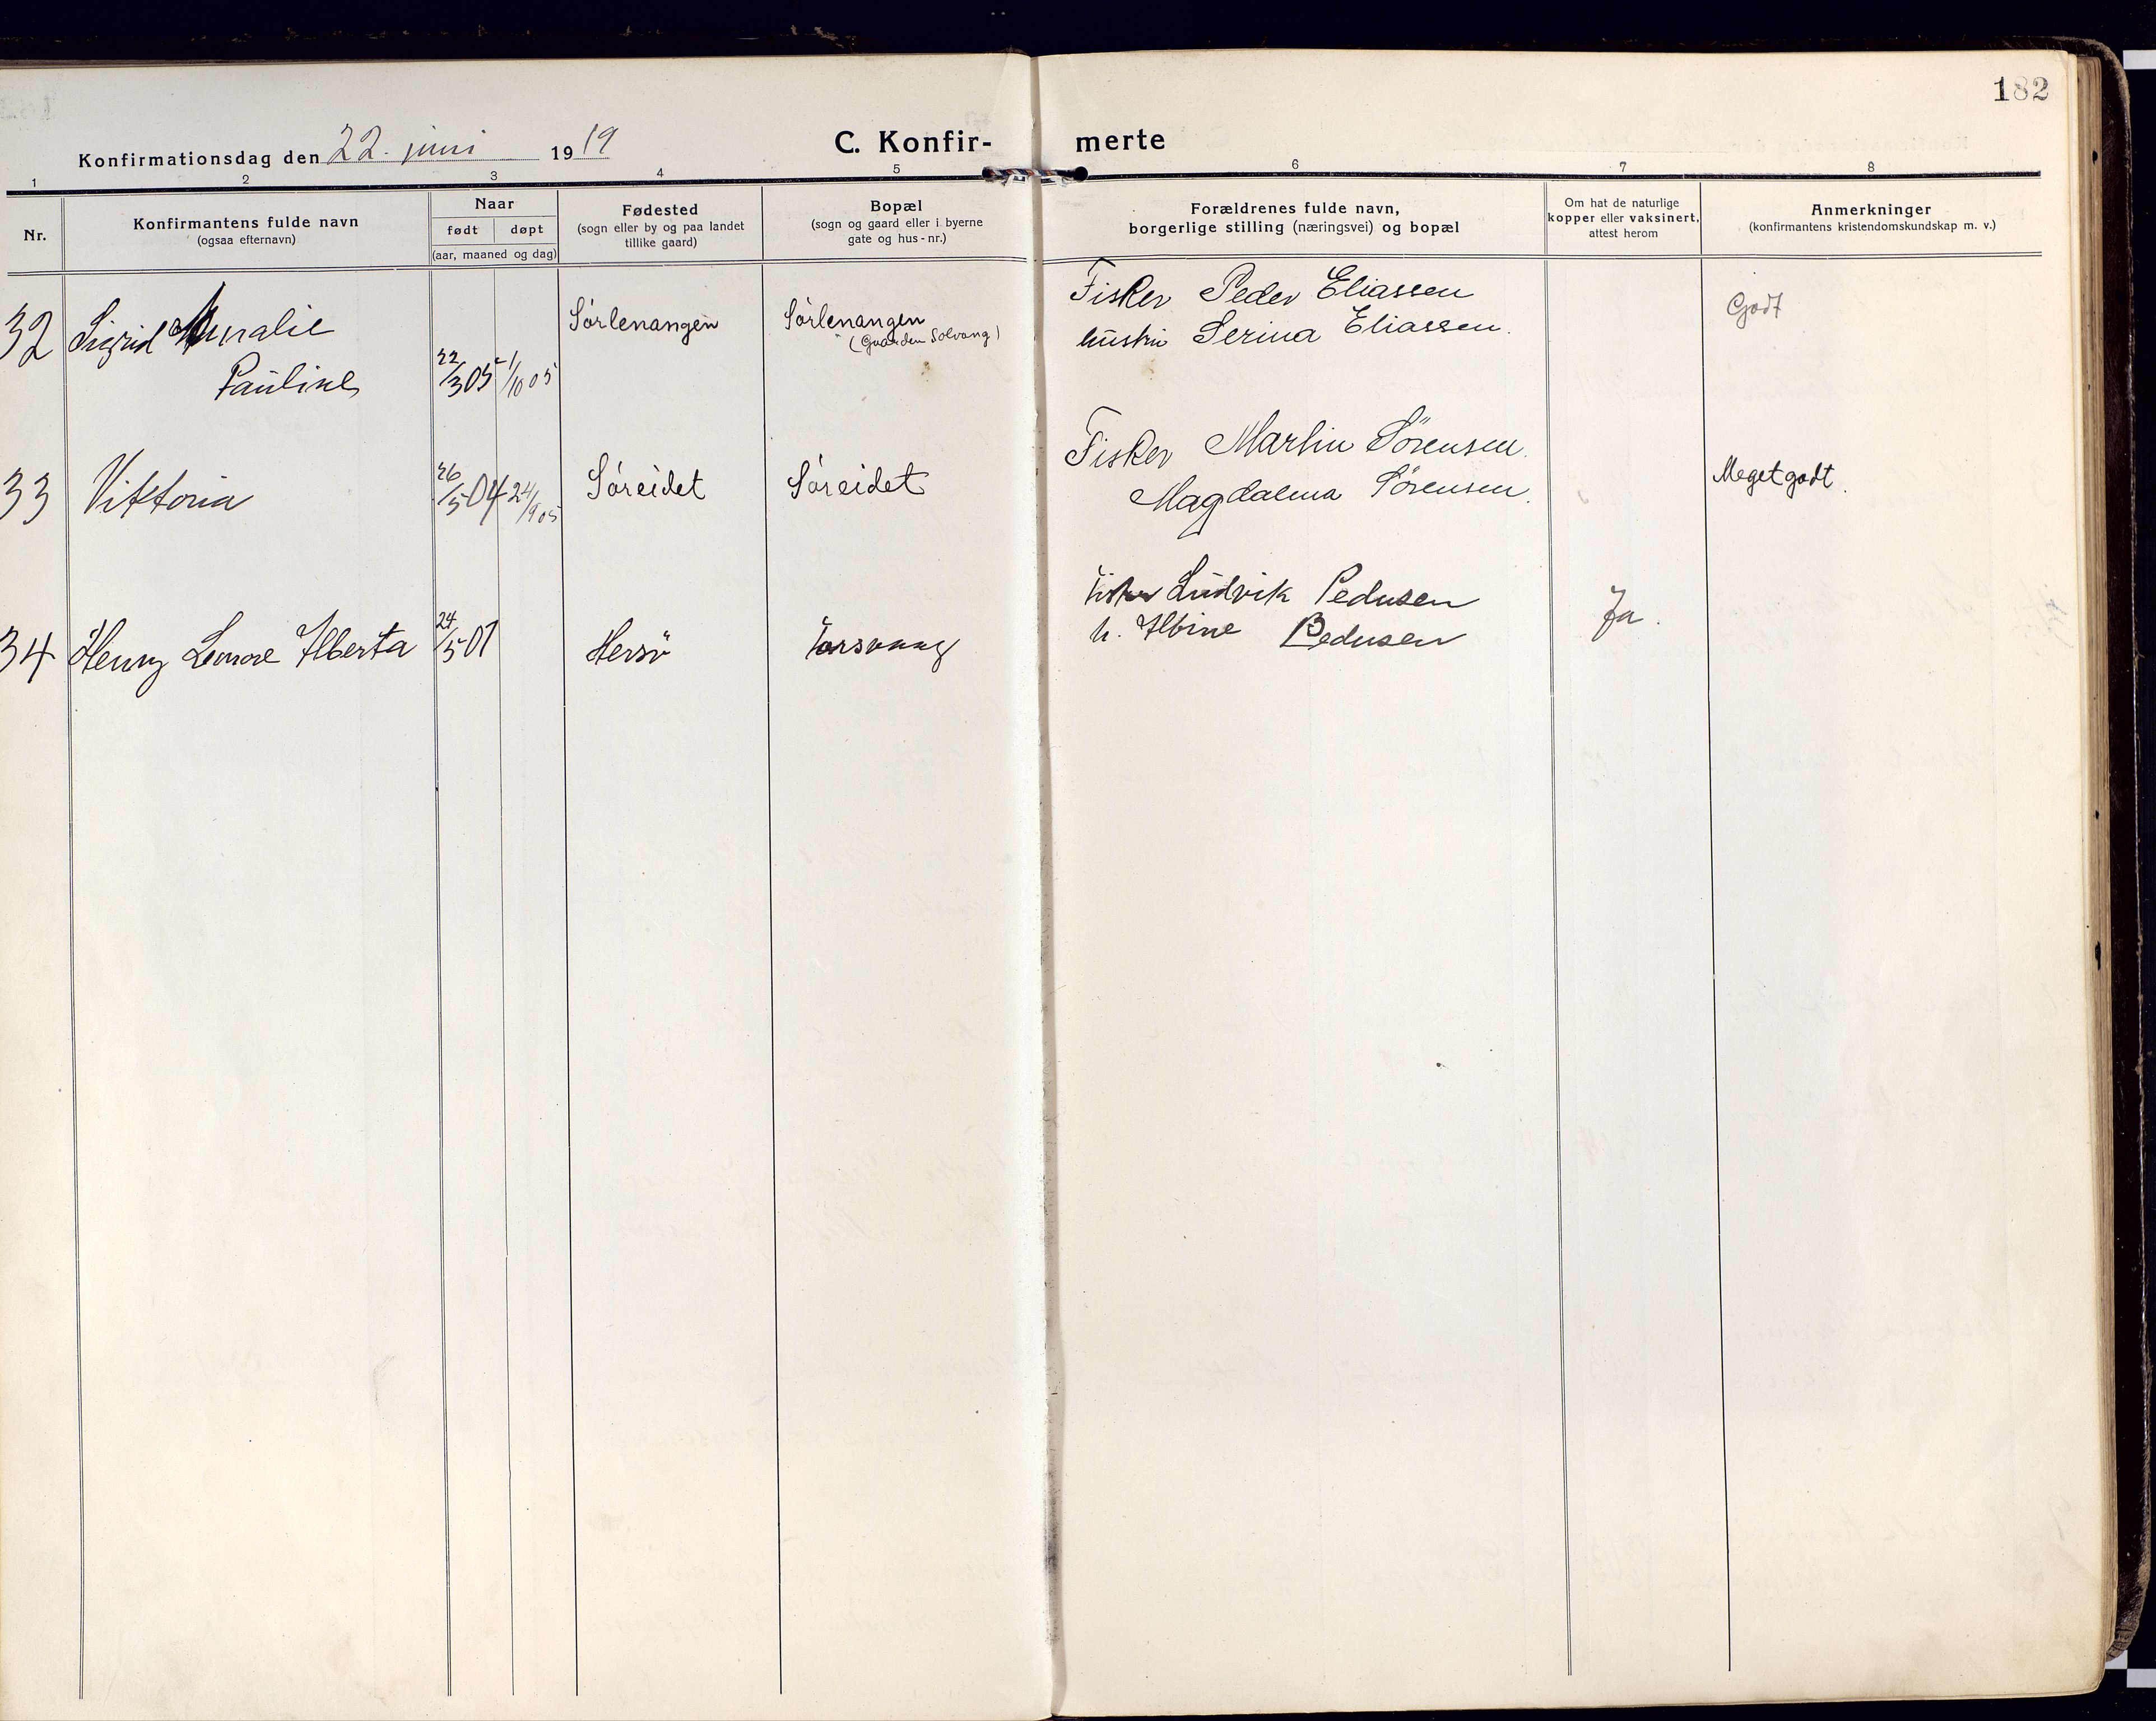 182
Konfirmationsdag den 22. juni 1919
C. Konfir- merte
1 2 3 4 5 6 7 8
Nr.
Konfirmantens fulde navn
(ogsaa efternavn)
Naar
født døpt
(aar, maaned og dag)
Fødested
(sogn eller by og paa landet
tillike gaard)
Bopæl
(sogn og gaard eller i byerne
gate og hus-nr.)
Forældrenes fulde navn,
borgerlige stilling (næringsvei) og bopæl
Om hat de naturlige
kopper eller vaksinert,
attest herom
Anmerkninger
(konfirmantens kristendomskundskap m. v.)
32 Sigrid
Pauline
22/3 05 1/10 05
Sørlenangen
Sørlenangen
(Gaarden Solvang)
Fisker Peder Eliassen
hustru Serina Eliassen.
Godt
33 Viktoria
26/5 04 24/9 05
Søreidet
Søreidet
Fisker Martin Sörensen.
Magdalena Sörensen.
Meget godt.
34 Henny Leonore Alberta
24/5 01
Hersö
Torsvaag
Fisker Ludvik Pedersen
h. Albine Pedersen
Ja.